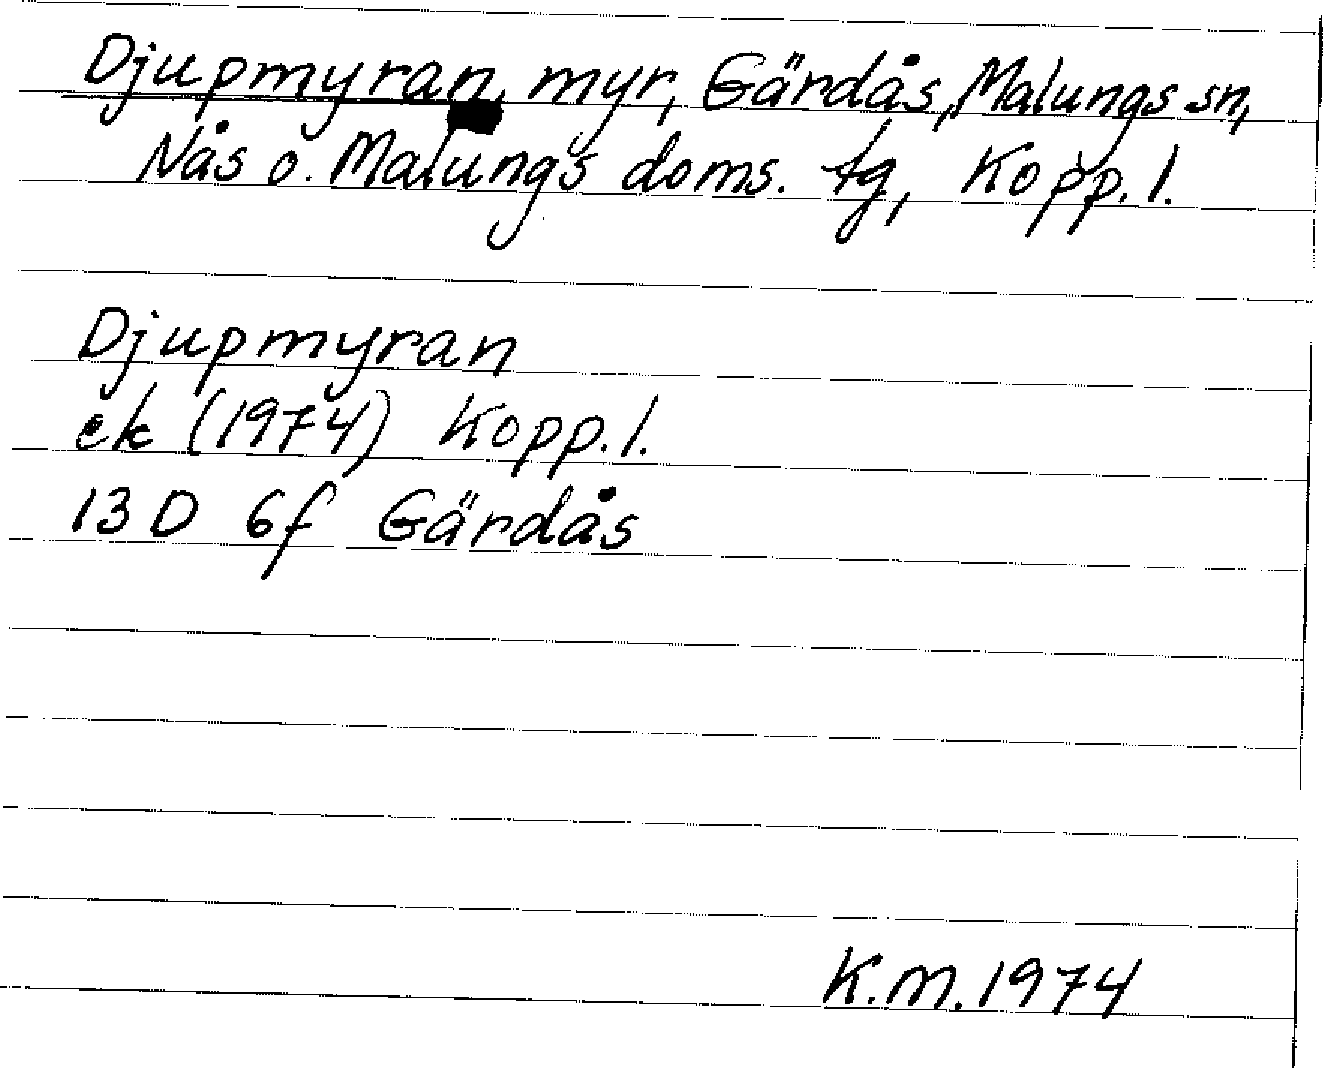 Djupmyran, myr, Gärdås, Malungs sn,
Nås o. Malungs doms. tg, Kopp. l.
Djupmyran
ek (1974) Kopp. l.
13 D 6f Gärdås
K.M. 1974